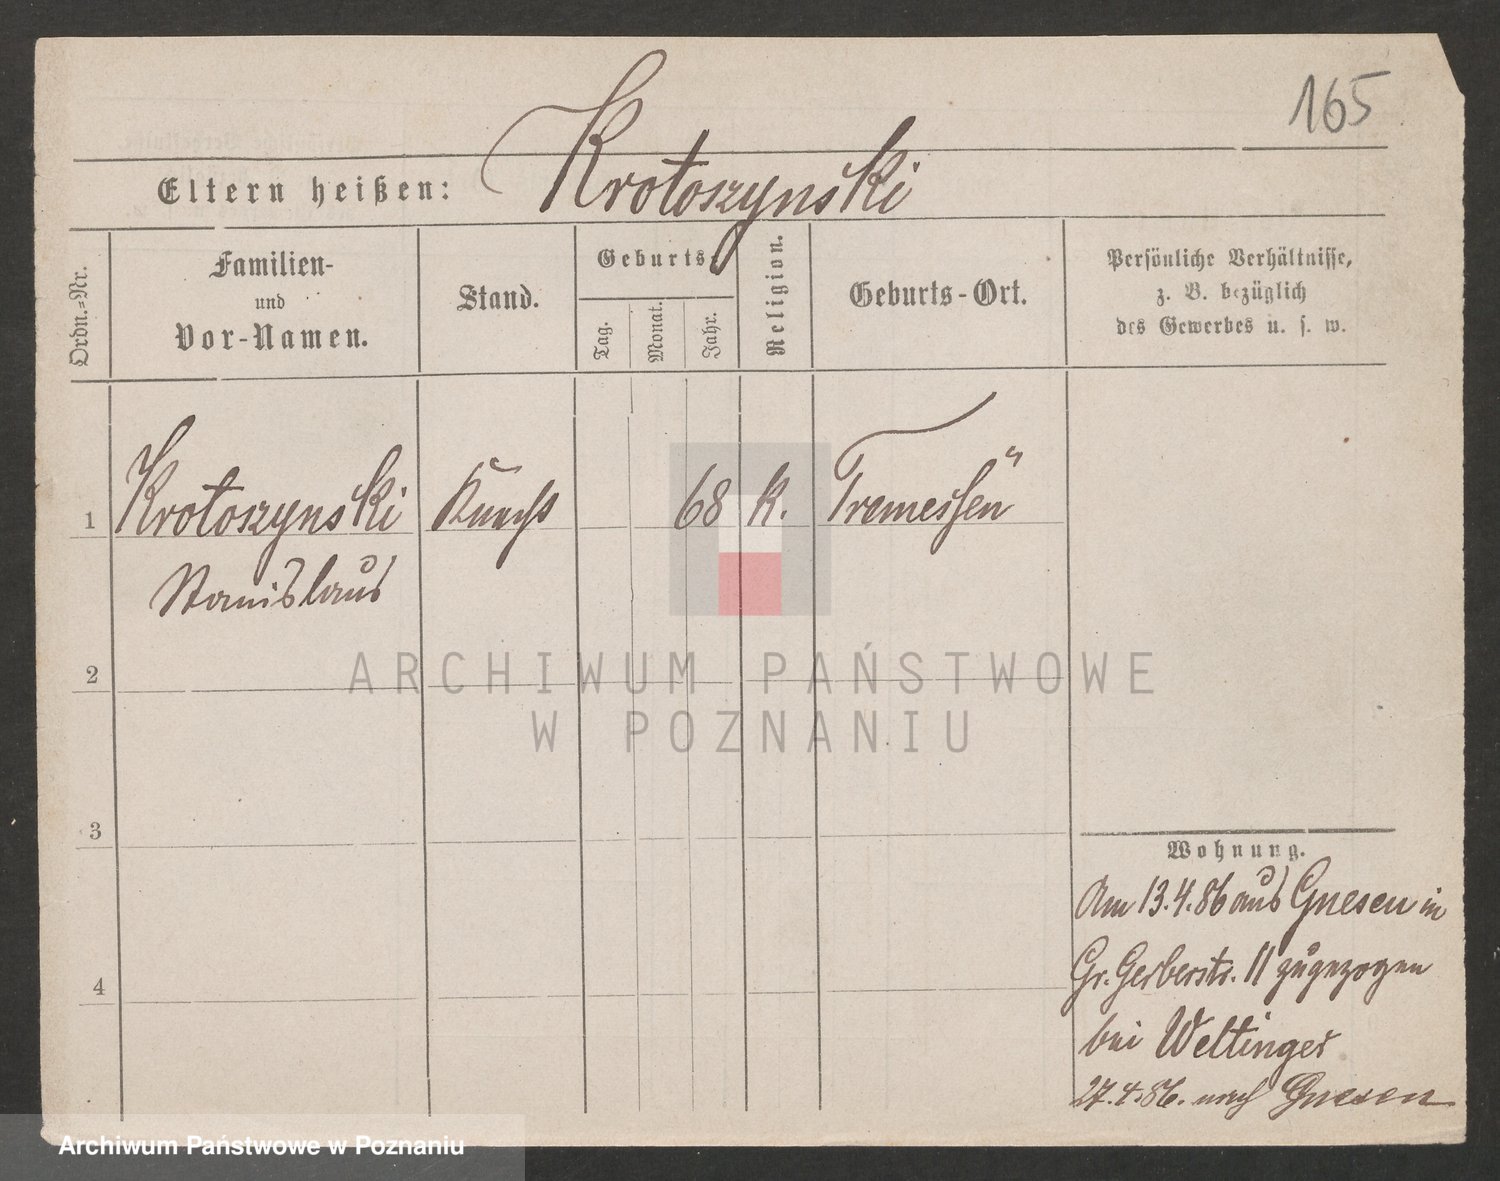 165
Eltern heißen: Krotoszynski
Ordn.-Nr.
Familien-
und
Vor-Namen.
Stand.
Geburts-
Tag.
Monat.
Jahr.
Religion.
Geburts-Ort.
Persönliche Verhältnisse,
z. B. bezüglich
des Gewerbes u. s. w.
1 Krotoszynski Knecht 68 k. Tremessen
Stanislaus
2
3
4
Wohnung.
Am 13.4.86 aus Gnesen in
Gr. Gerberstr. 11 zugezogen
bei Weltinger
27.4.86. nach Gnesen
ARCHIWUM PAŃSTWOWE
W POZNANIU
Archiwum Państwowe w Poznaniu